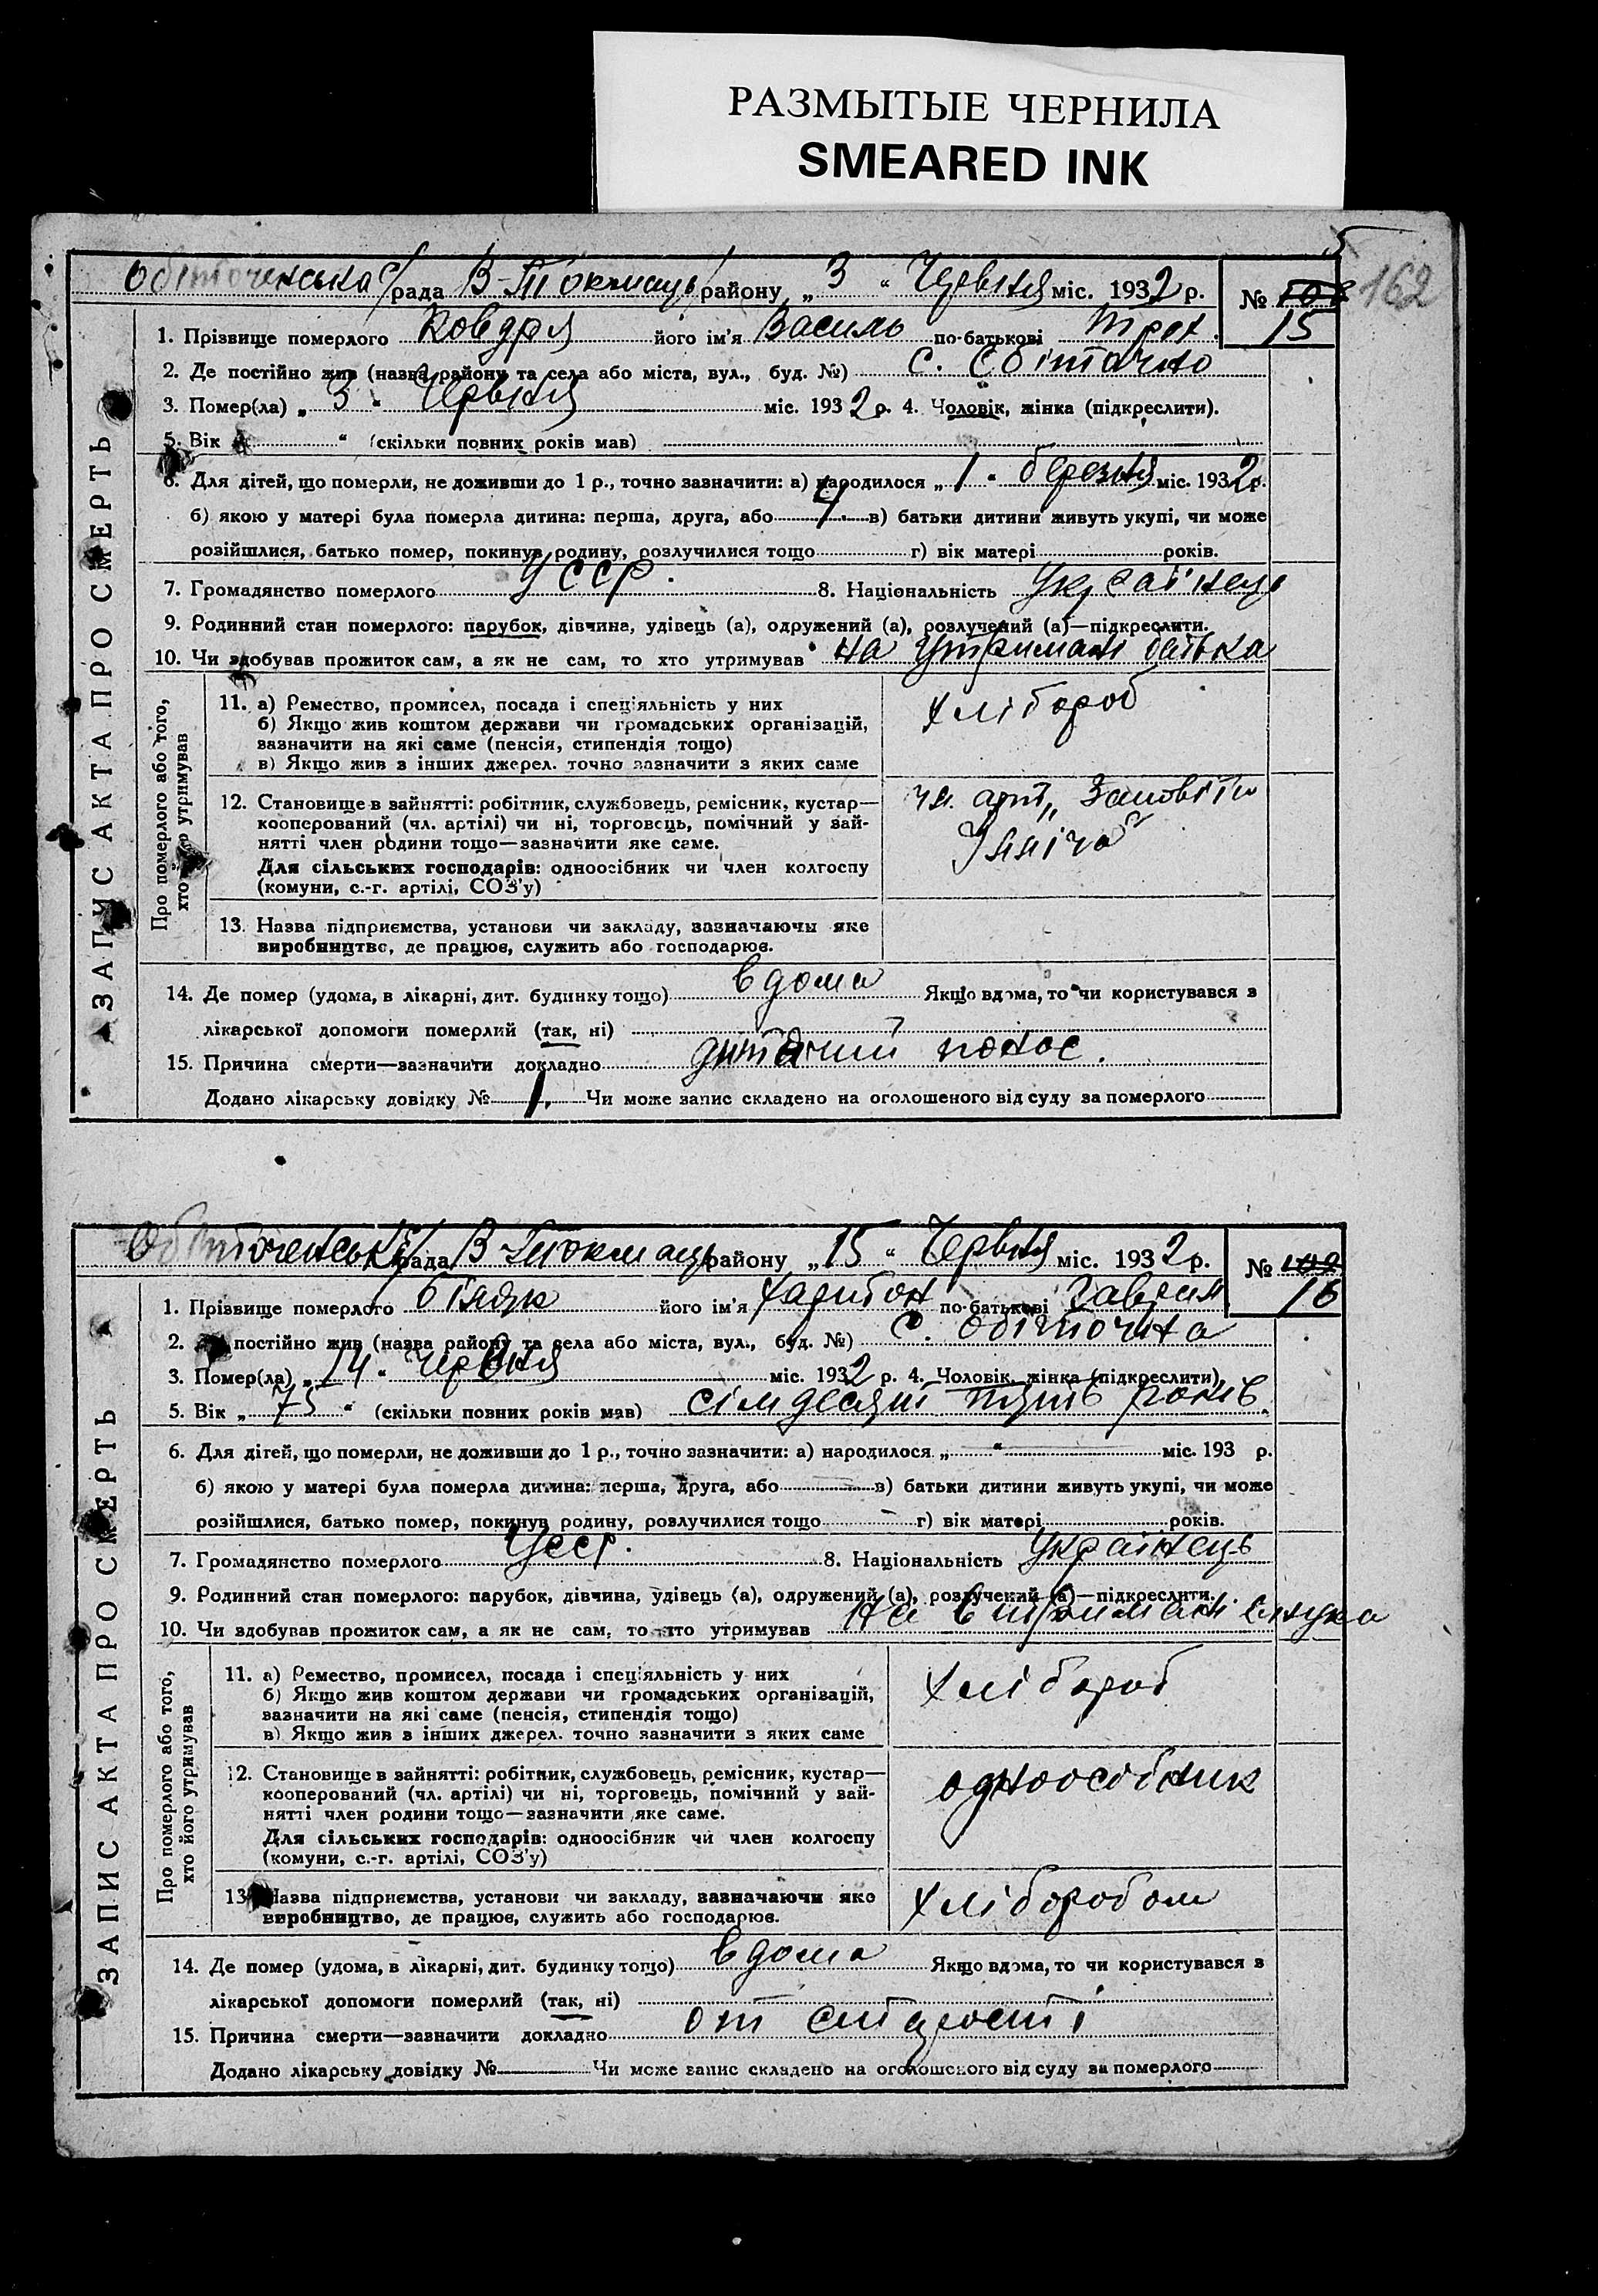 РАЗМЫТЫЕ ЧЕРНИЛА
SMEARED INK
5
162
Обіточенська с/рада В-Токмацьк району „3“ Червня міс. 1932 р. №
15
1. Прізвище померлого Ковдря його ім'я Василь по-батькові Трох.
2. Де постійно жив (назва району та села або міста, вул., буд. №) с. Обіточно
3. Помер(ла) „3“ Червня міс. 1932 р. 4. Чоловік, жінка (підкреслити).
5. Вік „ “ (скільки повних років мав)
6. Для дітей, що померли, не доживши до 1 р., точно зазначити: а) народилося „1“ березня міс. 1932 р.
б) якою у матері була померла дитина: перша, друга, або 4 в) батьки дитини живуть укупі, чи може
розійшлися, батько помер, покинув родину, розлучилися тощо г) вік матері років.
7. Громадянство померлого УССР. 8. Національність Українець
9. Родинний стан померлого: парубок, дівчина, удівець (а), одружений (а), розлучений (а)—підкреслити.
10. Чи здобував прожиток сам, а як не сам, то хто утримував на утримані батька
ЗАПИС АКТА ПРО СМЕРТЬ
Про померлого або того,
хто його утримував
11. а) Ремество, промисел, посада і спеціяльність у них
б) Якщо жив коштом держави чи громадських організацій,
зазначити на які саме (пенсія, стипендія тощо)
в) Якщо жив з інших джерел. точно зазначити з яких саме
хлібороб
12. Становище в зайнятті: робітник, службовець, ремісник, кустар—
кооперований (чл. артілі) чи ні, торговець, помічний у зай-
нятті член родини тощо—зазначити яке саме.
Для сільських господарів: одноосібник чи член колгоспу
(комуни, с.-г. артілі, СОЗ'у)
чл. арт. „Заповіти
Ілліча“
13. Назва підприємства, установи чи закладу, зазначаючи яке
виробництво, де працює, служить або господарює.
14. Де помер (удома, в лікарні, дит. будинку тощо) вдома Якщо вдома, то чи користувався з
лікарської допомоги померлий (так, ні)
15. Причина смерти—зазначити докладно дитячий понос.
Додано лікарську довідку № 1. Чи може запис складено на оголошеного від суду за померлого
Обіточенська с/рада В-Токмацьк району „15“ Червня міс. 1932 р. №
16
1. Прізвище померлого його ім'я Харитон по-батькові Гаврил
2. Де постійно жив (назва району та села або міста, вул., буд. №) с. Обіточна
3. Помер(ла) „14“ Червня міс. 1932 р. 4. Чоловік, жінка (підкреслити).
5. Вік „75“ (скільки повних років мав) сімдесят пять років.
6. Для дітей, що померли, не доживши до 1 р., точно зазначити: а) народилося „ “ міс. 193 р.
б) якою у матері була померла дитина: перша, друга, або в) батьки дитини живуть укупі, чи може
розійшлися, батько помер, покинув родину, розлучилися тощо г) вік матері років.
7. Громадянство померлого Уср. 8. Національність Українець
9. Родинний стан померлого: парубок, дівчина, удівець (а), одружений (а), розлучений (а)—підкреслити.
10. Чи здобував прожиток сам, а як не сам, то хто утримував на втримані
ЗАПИС АКТА ПРО СМЕРТЬ
Про померлого або того,
хто його утримував
11. а) Ремество, промисел, посада і спеціяльність у них
б) Якщо жив коштом держави чи громадських організацій,
зазначити на які саме (пенсія, стипендія тощо)
в) Якщо жив з інших джерел. точно зазначити з яких саме
хлібороб
12. Становище в зайнятті: робітник, службовець, ремісник, кустар—
кооперований (чл. артілі) чи ні, торговець, помічний у зай-
нятті член родини тощо—зазначити яке саме.
Для сільських господарів: одноосібник чи член колгоспу
(комуни, с.-г. артілі, СОЗ'у)
одноосібник
13. Назва підприємства, установи чи закладу, зазначаючи яке
виробництво, де працює, служить або господарює.
хліборобом
14. Де помер (удома, в лікарні, дит. будинку тощо) вдома Якщо вдома, то чи користувався з
лікарської допомоги померлий (так, ні)
15. Причина смерти—зазначити докладно от старости
Додано лікарську довідку № Чи може запис складено на оголошеного від суду за померлого